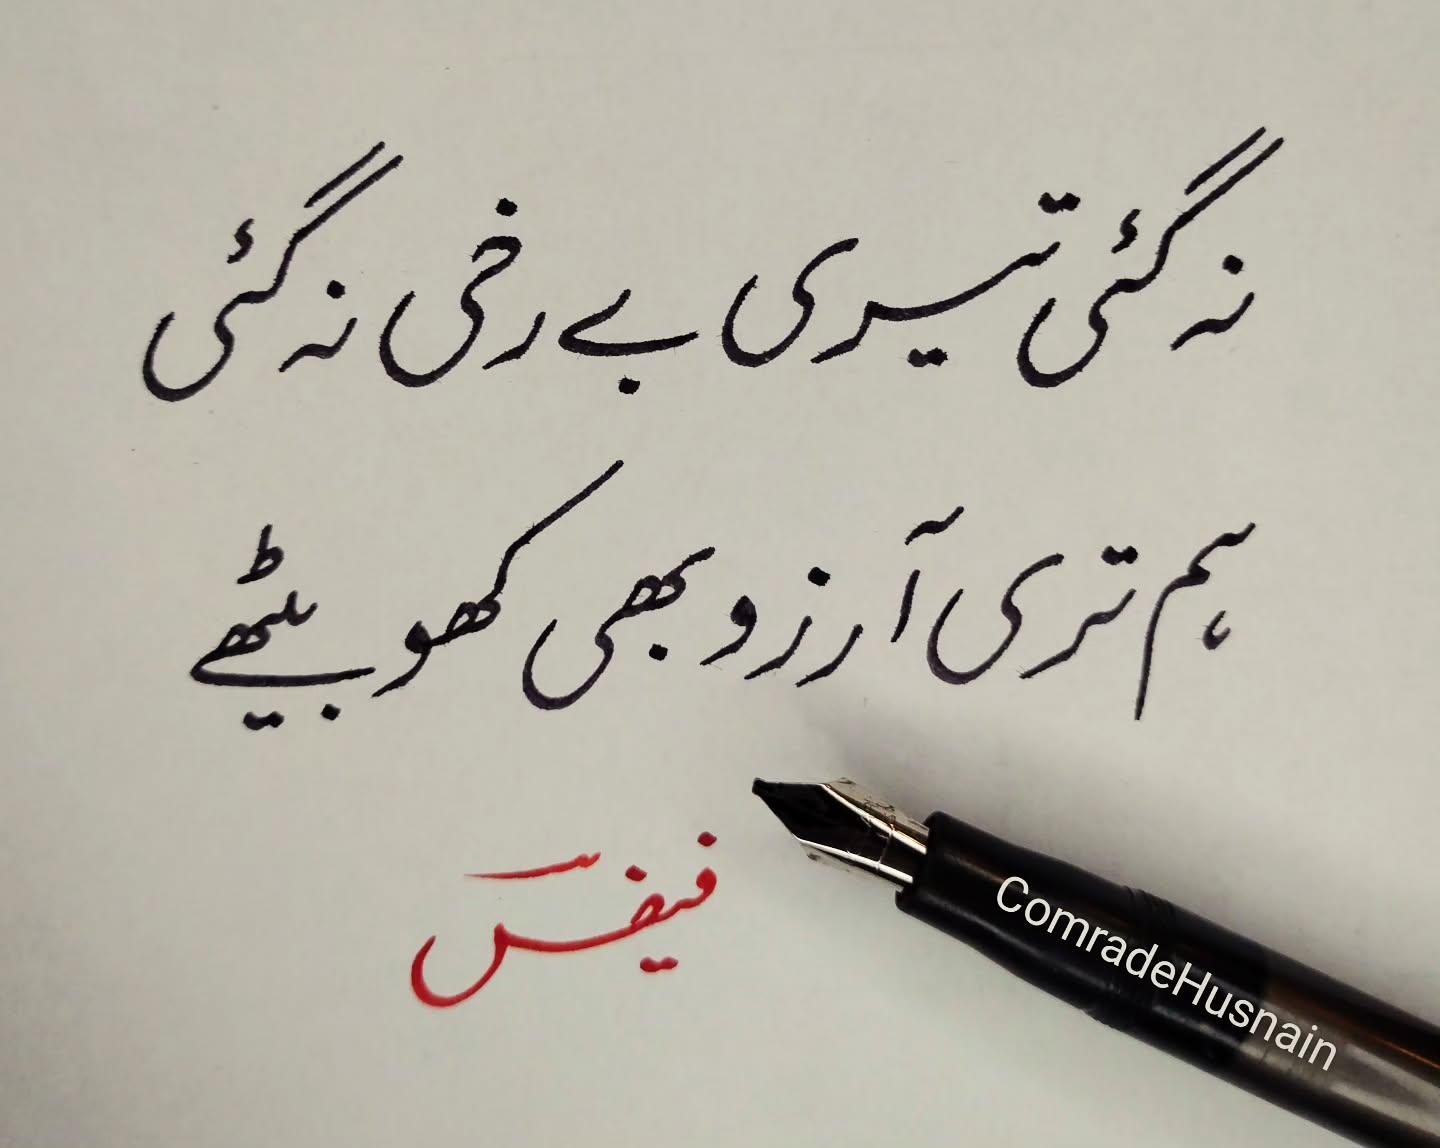 نہ گئی تیری بے رخی نہ گئی
ہم تری آرزو بھی کھو بیٹھے
فیضؔ
ComradeHusnain